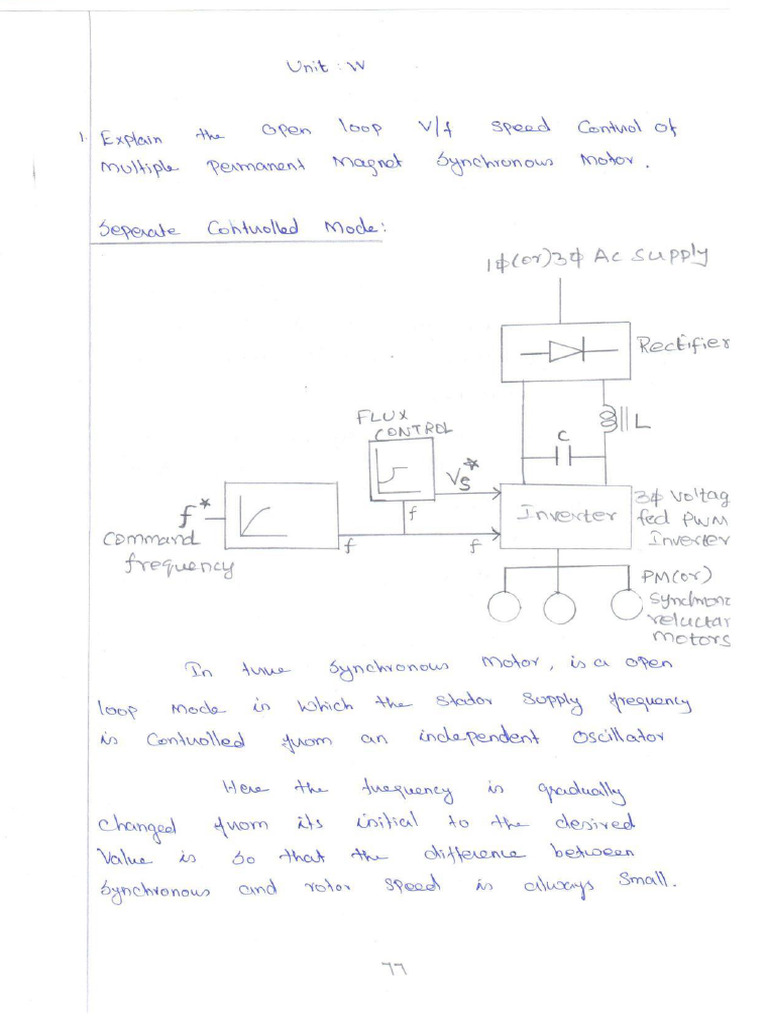 Unit : IV
1. Explain the open loop V/f speed Control of
Multiple Permanent Magnet Synchronous Motor.
Seperate Controlled Mode:
1ϕ(or)3ϕ Ac supply
Rectifier
L
C
FLUX
CONTROL
Vs*
f
f*
Command
frequency
f
f
Inverter
3ϕ Voltag
fed PWM
Inverter
PM(or)
Synchron
reluctar
motors
In true Synchronous Motor, is a open
loop Mode in which the stator Supply frequency
is Controlled from an independent Oscillator
Here the frequency is gradually
Changed from its initial to the desired
Value is so that the difference between
Synchronous and rotor speed is always Small.
77